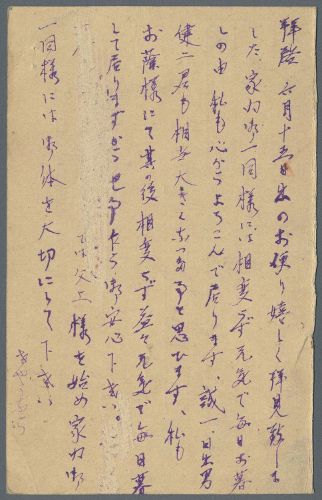 拝啓 六月十五日出のお便り嬉しく拝見致しま
した、家内御一同様には相変らず元気で毎日お暮
しの由 私も心からよろこんで居ります、誠一、日出男
健二君も相当大きくなった事と思ひます、私も
お蔭様にて其の後相変らず益々元気で毎日暮
して居りますから他事乍ら御安心下さい。
では父上様を始め家内御
一同様には御体を大切にして下さい
さやうなら